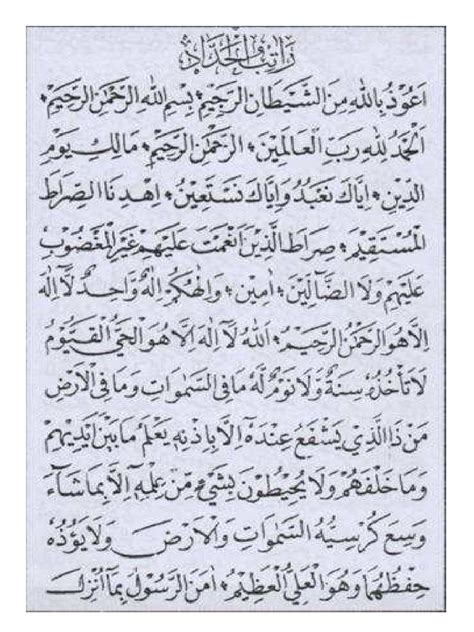 رَاتِبُ الْحَدَّادِ
اَعُوْذُ بِاللهِ مِنَ الشَّيْطَانِ الرَّجِيْمِ؛ بِسْمِ اللهِ الرَّحْمٰنِ الرَّحِيْمِ؛
اَلْحَمْدُ لِلهِ رَبِّ الْعَالَمِيْنَ؛ الرَّحْمٰنِ الرَّحِيْمِ؛ مَالِكِ يَوْمِ
الدِّيْنِ؛ اِيَّاكَ نَعْبُدُ وَاِيَّاكَ نَسْتَعِيْنُ؛ اِهْدِنَا الصِّرَاطَ
الْمُسْتَقِيْمَ؛ صِرَاطَ الَّذِيْنَ اَنْعَمْتَ عَلَيْهِمْ غَيْرِ الْمَغْضُوْبِ
عَلَيْهِمْ وَلَا الضَّآلِّيْنَ؛ اٰمِيْن؛ وَاِلٰهُكُمْ اِلٰهٌ وَّاحِدٌ لَآ اِلٰهَ
اِلَّا هُوَ الرَّحْمٰنُ الرَّحِيْمُ؛ اَللهُ لَآ اِلٰهَ اِلَّا هُوَ الْحَيُّ الْقَيُّوْمُ
لَا تَأْخُذُهٗ سِنَةٌ وَّلَا نَوْمٌ لَّهٗ مَا فِى السَّمٰوَاتِ وَمَا فِى الْاَرْضِ
مَنْ ذَا الَّذِيْ يَشْفَعُ عِنْدَهٗٓ اِلَّا بِاِذْنِهٖ يَعْلَمُ مَا بَيْنَ اَيْدِيْهِمْ
وَمَا خَلْفَهُمْ وَلَا يُحِيْطُوْنَ بِشَيْءٍ مِّنْ عِلْمِهٖٓ اِلَّا بِمَا شَآءَ
وَسِعَ كُرْسِيُّهُ السَّمٰوَاتِ وَالْاَرْضَ وَلَا يَؤُدُهٗ
حِفْظُهُمَا وَهُوَ الْعَلِيُّ الْعَظِيْمُ؛ اٰمَنَ الرَّسُوْلُ بِمَآ اُنْزِلَ